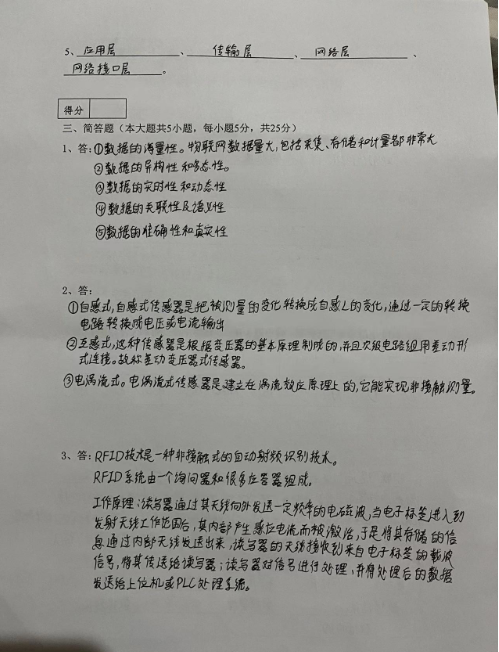 5、应用层、传输层、网络层、
网络接口层。
得分
三、简答题（本大题共5小题，每小题5分，共25分）
1、答:①数据的海量性。物联网数据量大,包括采集、存储和计量都非常大
②数据的异构性和多态性。
③数据的实时性和动态性
④数据的关联性及语义性
⑤数据的准确性和真实性
2、答:
①自感式,自感式传感器是把被测量的变化转换成自感L的变化,通过一定的转换
电路转换成电压或电流输出
②互感式,这种传感器是根据变压器的基本原理制成的,并且次级电路组用差动形
式连接。故称差动变压器式传感器。
③电涡流式。电涡流式传感器是建立在涡流效应原理上的,它能实现非接触测量。
3、答:RFID技术是一种非接触式的自动射频识别技术。
RFID系统由一个询问器和很多应答器组成。
工作原理:读写器通过其天线向外发送一定频率的电磁波,当电子标签进入到
发射天线工作范围后,其内部产生感应电流而被激活,于是将其存储的信
息通过内部天线发送出来,读写器的天线接收到来自电子标签的载波
信号,将其传送给读写器;读写器对信号进行处理、并将处理后的数据
发送给上位机或PLC处理系统。